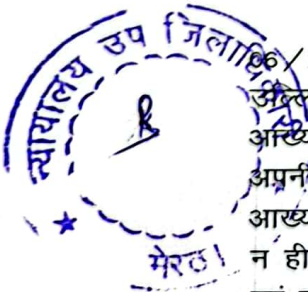 न्यायालय उप जिलाधिकारी
मेरठ।
06 /
अल्ल
आख्य
अपनी
आख्य
न ही